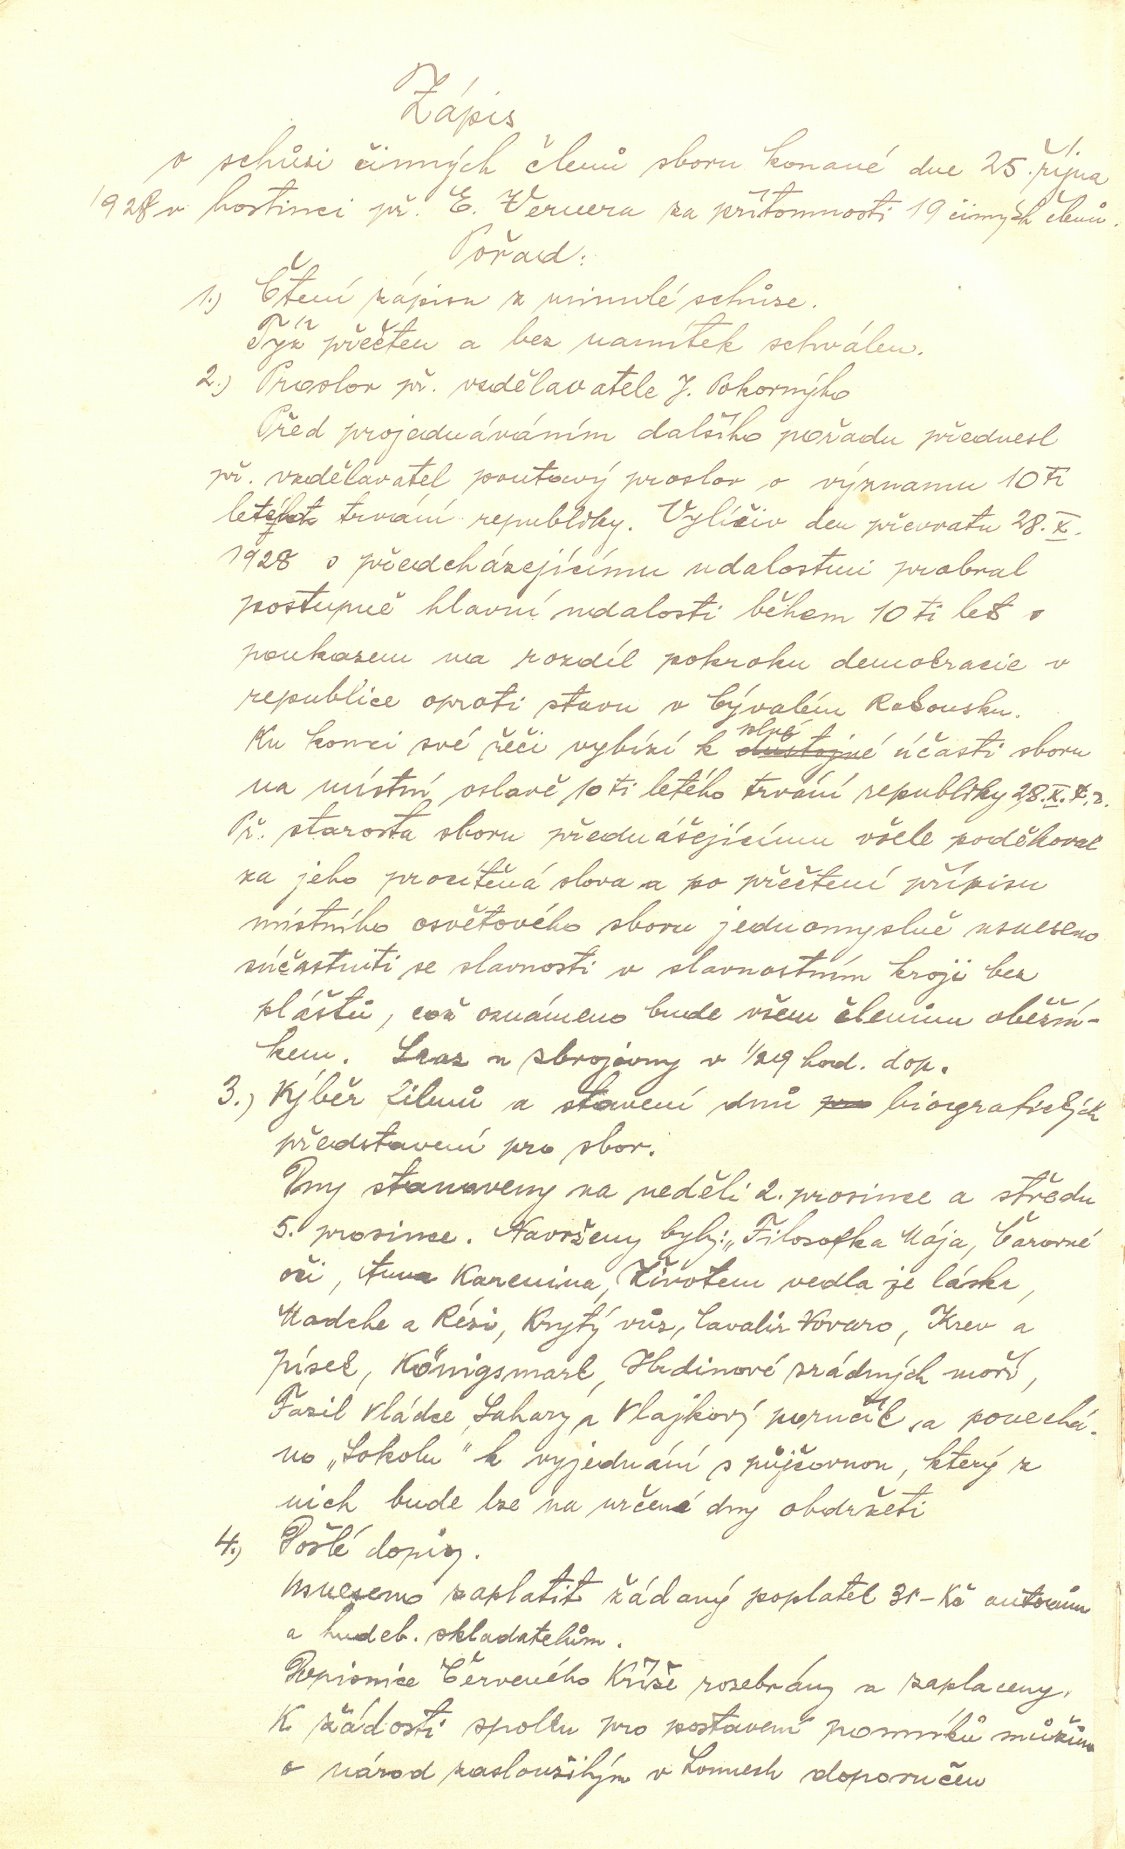 Zápis
o schůzi činných členů sboru konané dne 25. října
1928 v hostinci př. E. Vernera za přítomnosti 19 činných členů.
Pořad:
1.) Čtení zápisu z minulé schůze.
Týž přečten a bez namítek schválen.
2.) Proslov př. vzdělavatele J. Pokorného
Před projednáváním dalšího pořadu přednesl
př. vzdělavatel poutavý proslov o významu 10 ti
letého trvání republiky. Vylíčiv den převratu 28. X.
1928 s předcházejícímu událostmi probral
postupně hlavní události během 10 ti let s
poukazem na rozdíl pokroku demokracie v
republice oproti stavu v bývalém Rakousku.
Ku konci své řeči vybízí k důstojné účasti sboru
na místní oslavě 10 ti letého trvání republiky 28. X. t. r.
Př. starosta sboru přednášejícímu vřele poděkoval
za jeho procítěná slova a po přečtení přípisu
místního osvětového sboru jednomyslně usneseno
súčastniti se slavnosti v slavnostním kroji bez
pláštů, což oznámeno bude všem členům oběžní-
kem. Sraz u zbrojovny v 1/2 9 hod. dop.
3.) Výběr filmů a stavení dnů pro biografických
představení pro sbor.
Dny stanoveny na neděli 2. prosince a středu
5. prosince. Navrženy byly: „Filosofka Mája, Čarovné
oči, Anna Karenina, Životem vedla je láska,
Madche a Rési, Krytý vůz, Cavalír Novaro, Krev a
písek, Königsmark, Hrdinové zrádných moří,
Fazil vládce Sahary a Vlajkový poručík, a ponechá-
no „Sokolu" k vyjednání s půjčovnou, který z
nich bude lze na určené dny obdržeti
4.) Došlé dopisy.
Usneseno zaplatit žádaný poplatek 31- Kč autorům
a hudeb. skladatelům.
Dopisnice Červeného Kříže rozebrány a zaplaceny.
K žádosti spolku pro postavení pomníků mužům
o národ zasloužilým v Lomnesh doporučen